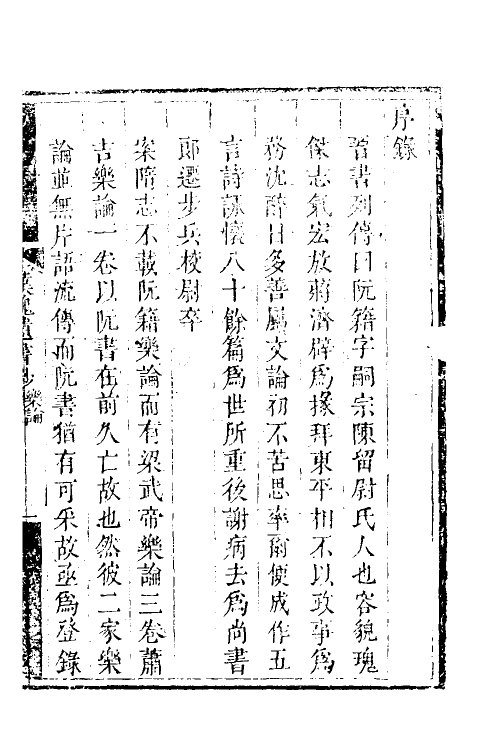 序錄
晉書列傳曰阮籍字嗣宗陳留尉氏人也容貌瑰
傑志氣宏放蔣濟辟爲掾拜東平相不以政事爲
務沈醉日多善屬文論初不苦思率爾便成作五
言詩詠懷八十餘篇爲世所重後謝病去爲尚書
郎遷步兵校尉卒
案隋志不載阮籍樂論而有梁武帝樂論三卷蕭
吉樂論一卷以阮書在前久亡故也然彼二家樂
論並無片語流傳而阮書猶有可采故亟爲登錄
漢魏遺書鈔 樂論 一